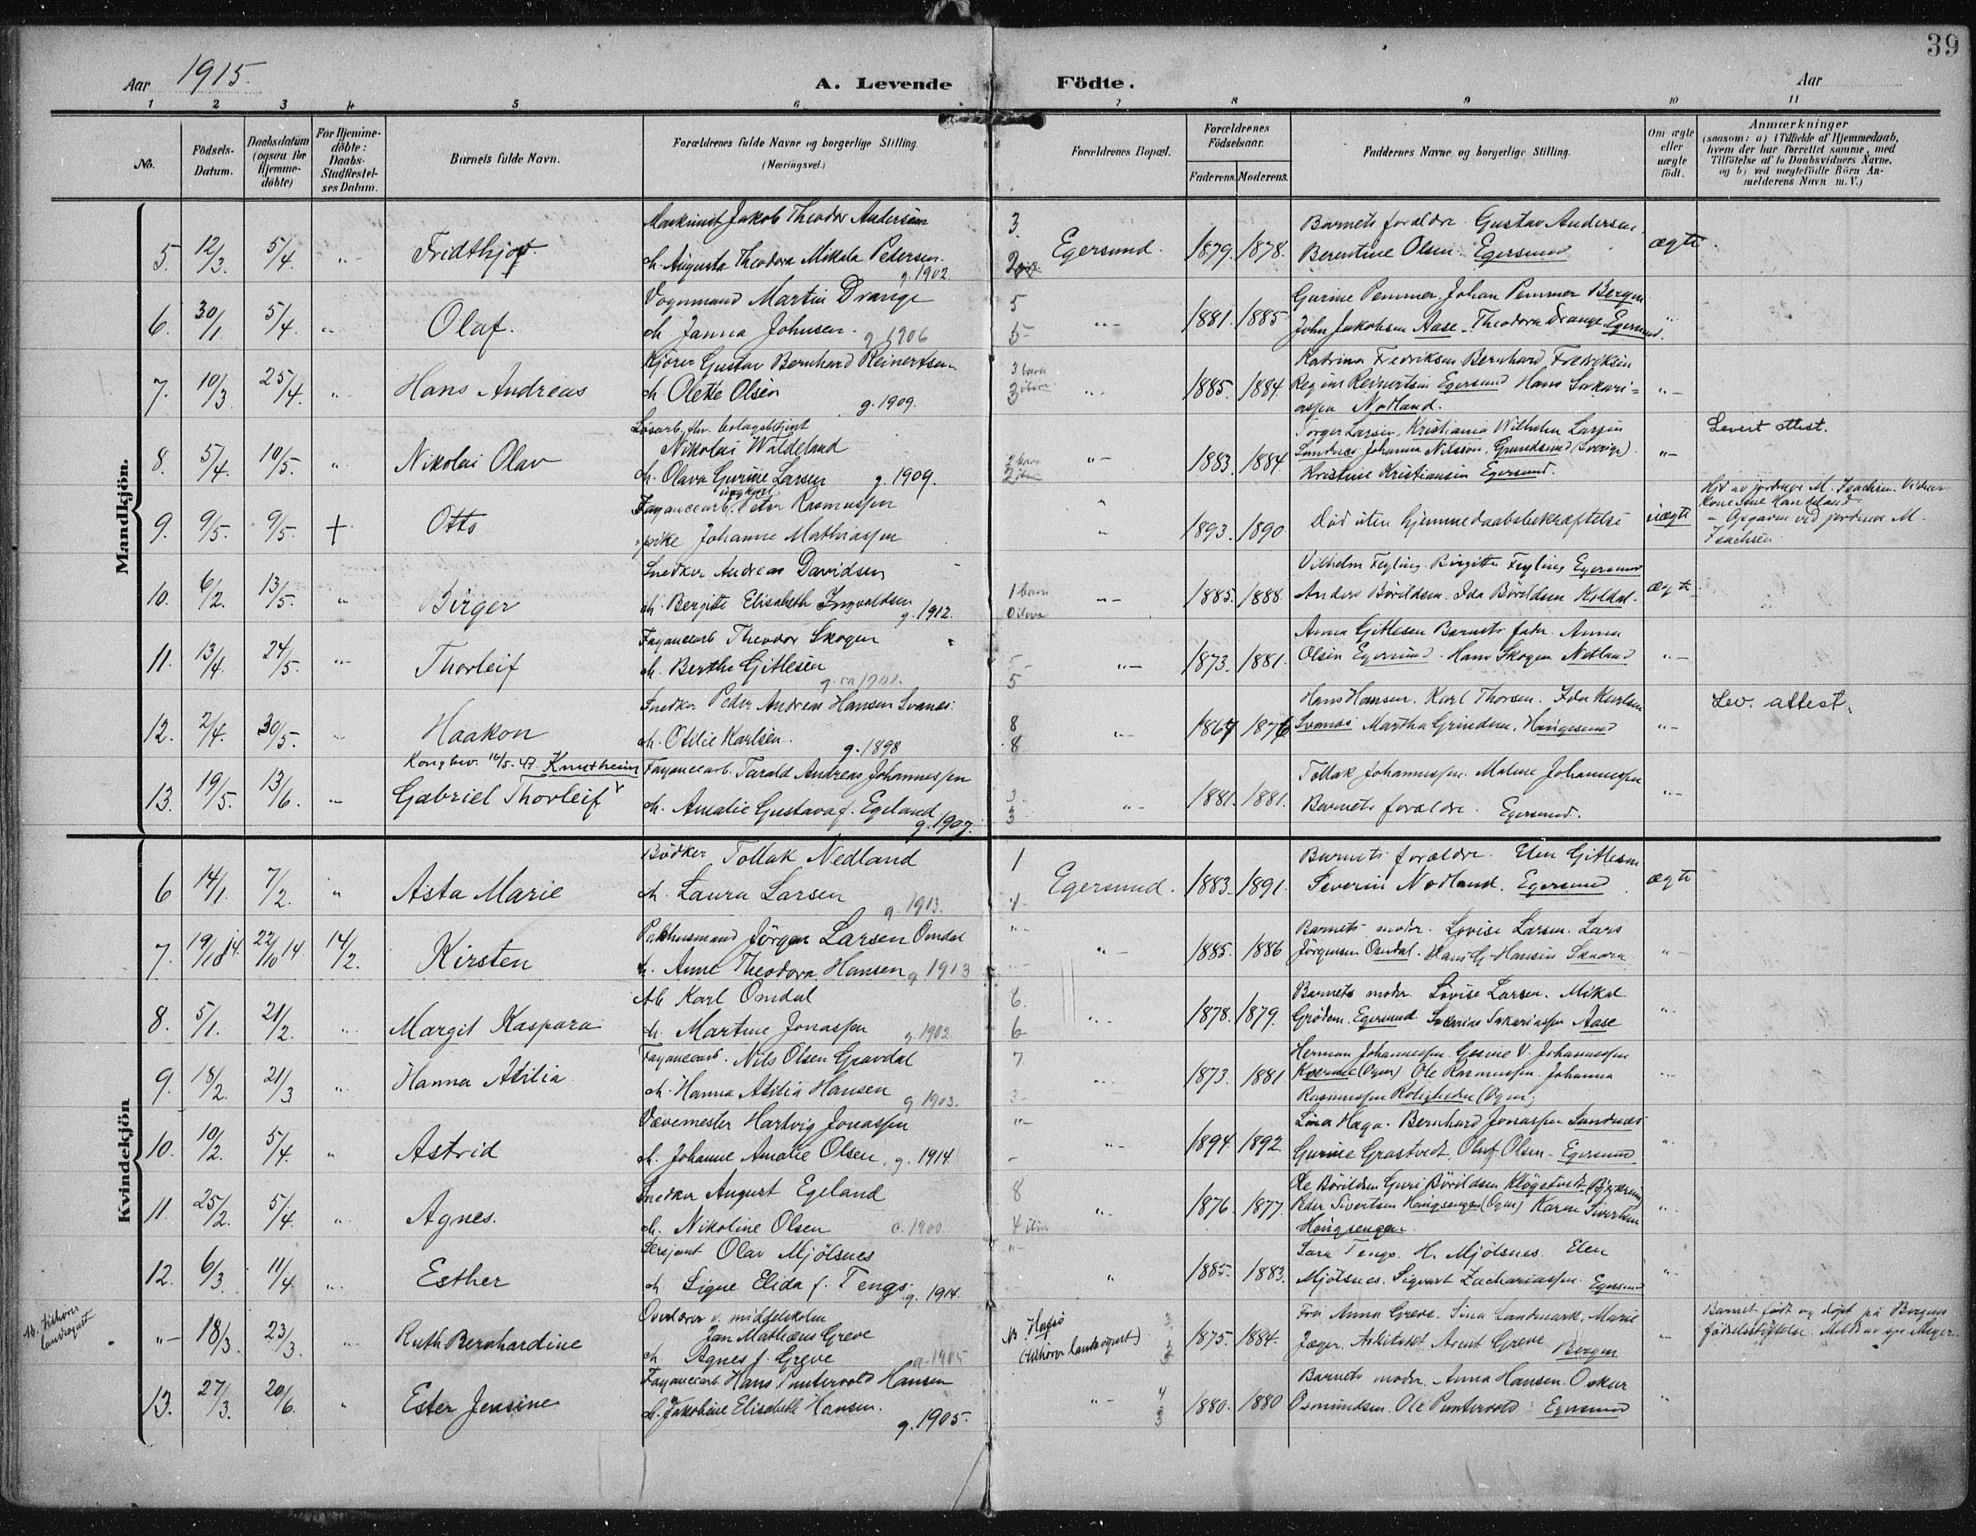 39
Aar 1915.
A. Levende Födte.
Aar
1 2 3 4 5 6 7 8 9 10 11
No.
Födsels-Datum.
Daabsdatum (ogsaa for Hjemme-döbte)
For Hjemme-döbte: Daabs-Stadfæstel-ses Datum.
Barnets fulde Navn.
Forældrenes fulde Navne og borgerlige Stilling.
(Næringsvei.)
Forældrenes Bopæl.
Forældrenes Födselsaar.
Faderens. Moderens.
Faddernes Navne og borgerlige Stilling.
Om ægte eller uægte födt.
Anmærkninger
(saasom: a) i Tilfælde af Hjemmedaab, hvem der har forrettet samme, med Tilföielse af to Daabsvidners Navne, og b) ved uægtefödte Börn Anmelderens Navn m. V.)
Mandkjön.
5. 12/3 5/4 Fridthjof Maskinist Jakob Theodor Andersen 3. Egersund. 1879. 1878. Barnets forældre. Gustav Andersen, ægte.
Augusta Theodora Mikala Pedersen. g. 1902 Berentine Olsen. Egersund
6. 30/1 5/4. Olaf. Vognmand Martin Drange 5 1881. 1885. Gurine Pemmer. Johan Pemmer Bergen
Janna Johnsen. g. 1906 5 John Jakobsen Aase. Theodora Drange Egersund.
7. 10/3 25/4. Hans Andreas Kjører Gustav Bernhard Reinertsen 3 barn 1885. 1884. Katrina Fredriksen Bernhard Fredriksen
Olette Olsen g. 1909. Regine Reinertsen Egersund Hans Sakari-
assen Nodland.
8. 5/4 10/5. Nikolai Olav Nikolai Waldeland 1883. 1884 Torger Larsen, Kristiania Wilhelm Larsen Levert attest.
Olava Gurine Larsen g. 1909. Sandnes Johanna Nilsson, Grundsund (Sverige).
Kristine Kristiansen Egersund.
9. 9/5. 9/5. + Otto Fayancearb. ungkarl Peter Rasmussen 1893. 1890 Død uten hjemmedaabsbekræftelse uægte
pike Johanne Mathiassen
10. 6/2. 13/5. Birger Snedker Andreas Davidsen 1 barn 1885. 1888. ægte
Bergitte Elisabeth Ingvaldsen g. 1912. Anders Börildsen. Ida Börildsen
11. 13/4 24/5. Thorleif Fayancearb Theodor Skogen 1873. 1881. Anna Gitlesen Barnets fader. Anna
Berthe Gitlesen g. ca 1901. 5 Olsen Egersund. Hans Skogen Netland
12. 2/4. 30/5. Haakon Snedker Peder Andreas Hansen Svanes. 8 Hans Hansen. Karl Thorsen. Ida Karlsen Lev. attest.
Otilie Karlsen. g. 1898 8 Svanes. Martha Grindem, Haugesund
13. 19/5. 13/6. Gabriel Thorleif Knutheim Fayancearb. Tarald Andreas Johannessen 3 1881. 1881. Tollak Johannessen. Malene Johannessen
Amalie Gustava f. Egeland g. 1907. 3 Barnets forældre. Egersund.
Kvindekjön
6 14/1. 7/2. Asta Marie Bødker Tollak Nedland 1 Egersund. 1883. 1891. Barnets forældre. Elen Gitlesen ægte
Laura Larsen g. 1913. Severin Nodland. Egersund
7. 19/10 14. 22/10 14 14/2. Kirsten Pakhusmand Jörgen Larsen Omdal 1885. 1886 Barnets moder. Lovise Larsen. Lars
Anne Theodora Hansen g 1913 Jörgensen Omdal. Hans G. Hansen Skaara
8. 5/1. 21/2. Margit Kaspara Karl Omdal 6. 1878. 1879. Barnets moder. Lovise Larsen. Mikal
Martine Jonassen g. 1902 6 Grödem. Egersund. Sakarias Sakariassen Aase
9. 18/2. 21/3 Hanna Atilia Fayancearb. Nils Olsen Gravdal 7. 1873. 1881. Herman Johannessen. Gesine V. Johannessen
Hanna Atilia Hansen g 1903. 3 Ole Rasmussen. Johanna
Rasmussen Roligheden (Ogna)
10. 10/2. 5/4. Astrid Vævemester Hartvig Jonassen 1894. 1892. Lina Haga. Bernhard Jonassen Sandnes
Johanne Amalie Olsen. g. 1914 Gurine Grastvedt, Oluf Olsen. Egersund
11. 25/2. 5/4. Agnes. Snedker August Egeland 8 1876. 1877. Ole Börildsen Guri Börildsen
Nikoline Olsen 1900 Peder Sivertsen Haugsengen (Ogna) Karen Sivertsen
Haugsengen.
12. 6/3 11/4 Esther Sersjant Olav Mjölsnes 1885. 1883. Sara Tengs. H. Mjölsnes. Elen
Signe Elida f. Tengs. g. 1914. Mjölsnes. Sigvart Zachariassen. Egersund
18/3. 23/3. Ruth Bernhardine Overlærer v. middelskolen Hafsö 3. 1875. 1884. Fru Anna Greve. Sina Landmark, Marie Barnet født og døpt på Bergens
Jan Mathæus Greve (tilhører landsognet) Jæger. Arkitekt Arent Greve Bergen fødselsstiftelse.
Agnes f. Greve
13. 27/3. 20/6. Ester Jensine Fayancearb. Hans Puntervold Hansen 4 1880. 1880 Barnets moder. Anna Hansen. Oskar
Jakobine Elisabeth Hansen. g. 1905. 3 Osmundsen. Ole Puntervold. Egersund